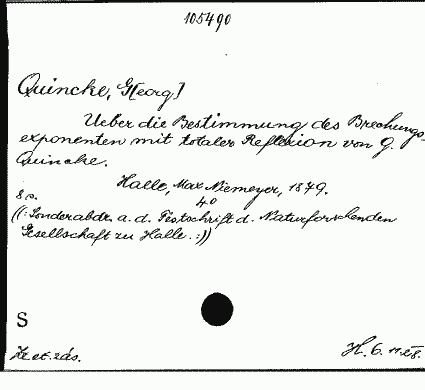 105490
Quincke, G[eorg]
Ueber die Bestimmung des Brechungs-
exponenten mit totaler Reflexion von G.
Quincke.
Halle, Max Niemeyer, 1879.
8 s. 4°
((: Sonderabdr. a. d. Festschrift d. Naturforschenden
Gesellschaft zu Halle. :))
S
H. 6.